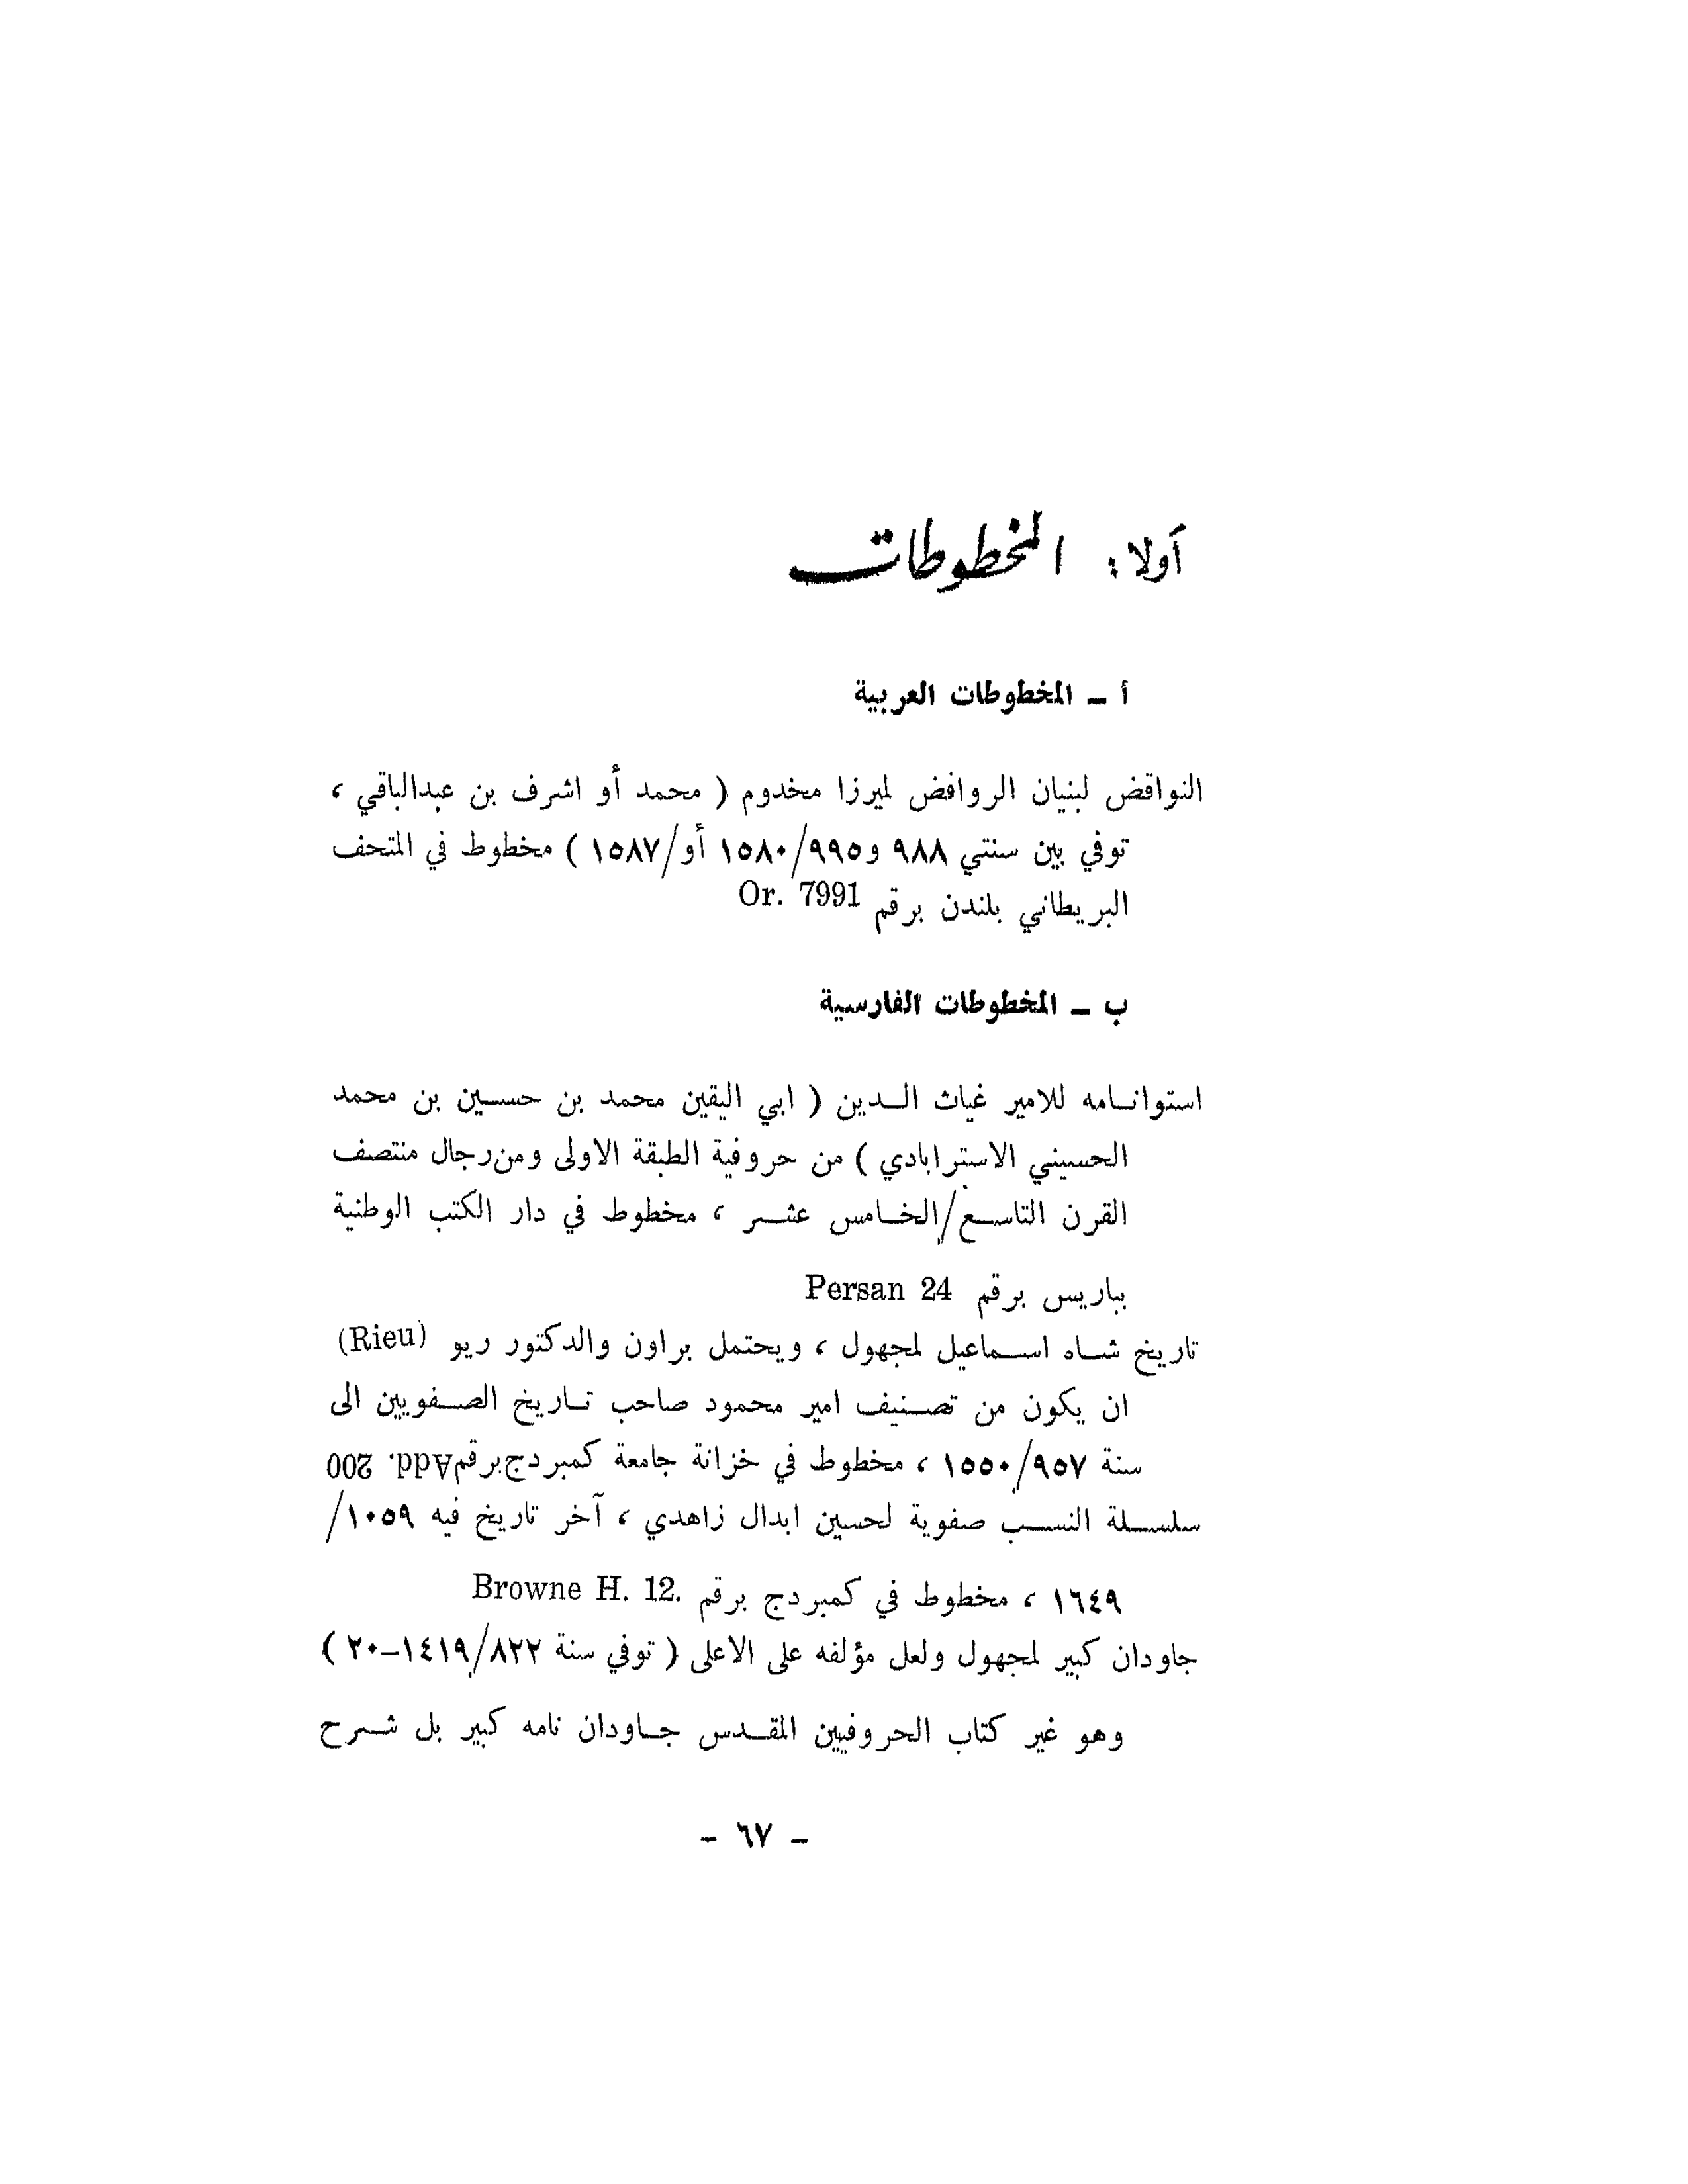 أولا : المخطوطات
أ ــ المخطوطات العربية
النواقض لبنيان الروافض لميرزا مخدوم ( محمد أو اشرف بن عبدالباقي ،
توفي بين سنتي ٩٨٨ و٩٩٥/١٥٨٠ أو/١٥٨٧ ) مخطوط في المتحف
البريطاني بلندن برقم Or. 7991
ب ــ المخطوطات الفارسية
استوانـامه للامير غياث الـدين ( ابي اليقين محمد بن حسـين بن محمد
الحسيني الاسترابادي ) من حروفية الطبقة الاولى ومن رجال منتصف
القرن التاسـع/الخـامس عشـر ، مخطوط في دار الكتب الوطنية
بباريس برقم Persan 24
تاريخ شـاه اسـماعيل لمجهول ، ويحتمل براون والدكتور ريو (Rieu)
ان يكون من تصـنيف امير محمود صاحب تـاريخ الصـفويين الى
سنة ٩٥٧/١٥٥٠ ، مخطوط في خزانة جامعة كمبردج برقم Add. 200
سلسـلة النسـب صفوية لحسين ابدال زاهدي ، آخر تاريخ فيه ١٠٥٩/
١٦٤٩ ، مخطوط في كمبردج برقم Browne H. 12.
جاودان كبير لمجهول ولعل مؤلفه على الاعلى ( توفي سنة ٨٢٢/١٤١٩ــ٢٠ )
وهو غير كتاب الحروفيين المقـدس جـاودان نامه كبير بل شـرح
- ٦٧ -